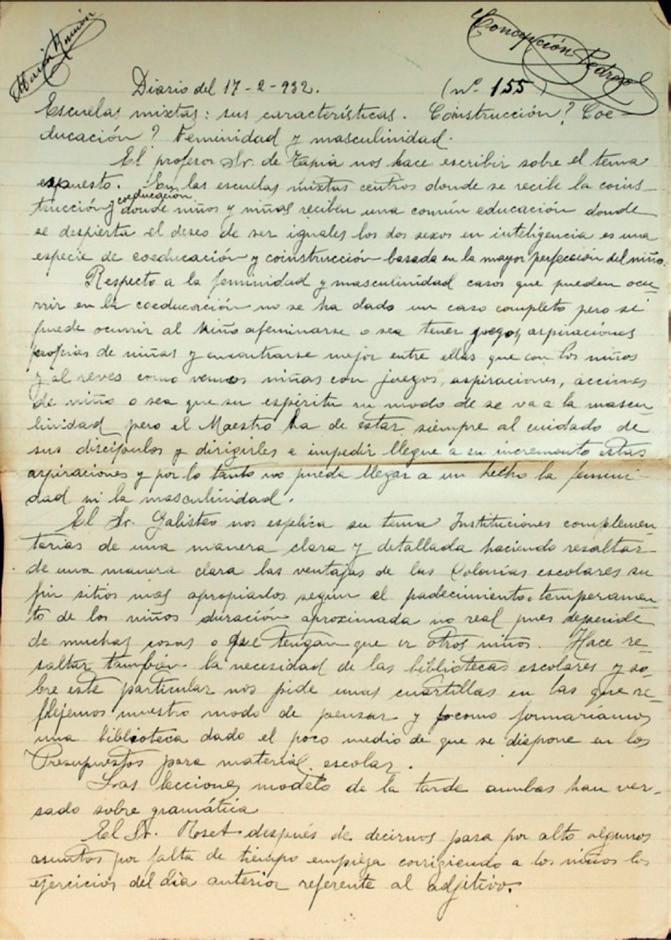 María Ramón
Concepción Pedroza
Diario del 17-2-932. (nº 155)
Escuelas mixtas: sus características. Coinstrucción? Coe-
ducación? Feminidad y masculinidad.
El profesor Sr. de Tapia nos hace escribir sobre el tema
expuesto. Son las escuelas mixtas centros donde se recibe la coins-
trucción y coeducación donde niños y niñas reciben una común educación donde
se despierta el deseo de ser iguales los dos sexos en inteligencia es una
especie de coeducación y coinstrucción basada en la mayor perfección del niño.
Respecto a la feminidad y masculinidad casos que pueden ocu-
rrir en la coeducación no se ha dado un caso completo pero si
puede ocurrir al niño afeminarse o sea tener juegos, aspiraciones
propias de niñas y encontrarse mejor entre ellas que con los niños
y al reves como vemos niñas con juegos, aspiraciones, acciones
de niño o sea que su espíritu su modo de se va a la mascu-
linidad pero el Maestro ha de estar siempre al cuidado de
sus discípulos y dirigirles e impedir llegue a su incremento estas
aspiraciones y por lo tanto no pueda llegar a un hecho la femini-
dad ni la masculinidad.
El Sr. Galisteo nos esplica su tema Instituciones complemen-
tarias de una manera clara y detallada haciendo resaltar
de una manera clara las ventajas de las Colonias escolares su
fin sitios mas apropiados segun el padecimiento, temperamen-
to de los niños duración aproximada no real pues depende
de muchas cosas o que tengan que ir otros niños. Hace re-
saltar también la necesidad de las bibliotecas escolares y so-
bre este particular nos pide unas cuartillas en las que re-
flejemos nuestro modo de pensar y como formaríamos
una biblioteca dado el poco medio de que se dispone en los
Presupuestos para material escolar.
Las lecciones modelo de la tarde ambas han ver-
sado sobre gramática
El Sr. Roset después de decirnos pasa por alto algunos
asuntos por falta de tiempo empieza corrigiendo a los niños los
ejercicios del día anterior referente al adjitivo.